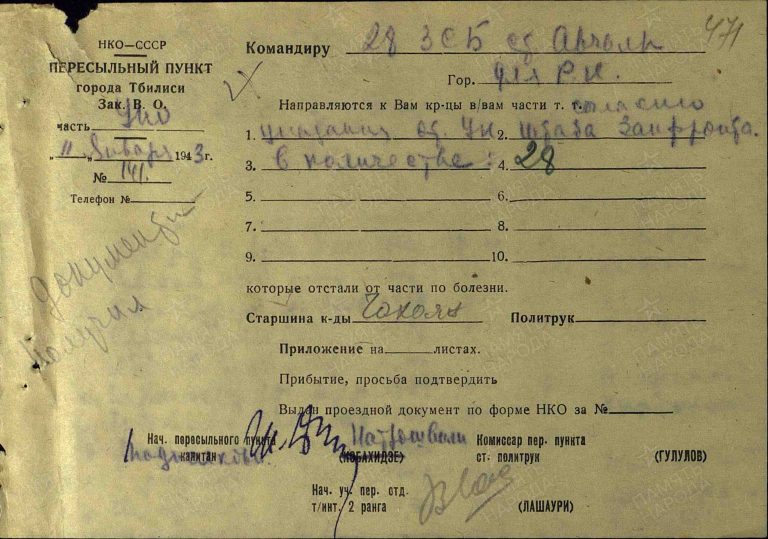 НКО—СССР
ПЕРЕСЫЛЬНЫЙ ПУНКТ
города Тбилиси
Зак. В. О.
часть УКО
„11„ Января 1943г.
№ 141.
Телефон №
Документы
получил
471
Командиру 28 ЗСБ ст.
Гор. для Р.К.
Направляются к Вам кр-цы в/вам части т. т. согласно
1. указания 2. штаба Закфронта.
3. в количестве: 4. 28
5. 6.
7. 8.
9. 10.
которые отстали от части по болезни.
Старшина к-ды Политрук
Приложение на листах.
Прибытие, просьба подтвердить
Выдан проездной документ по форме НКО за №
Нач. пересыльного пункта
капитан (КОБАХИДЗЕ)
Комиссар пер. пункта
ст. политрук (ГУЛУЛОВ)
Нач. уч. пер. отд.
т/инт. 2 ранга (ЛАШАУРИ)
ПАМЯТЬ НАРОДА